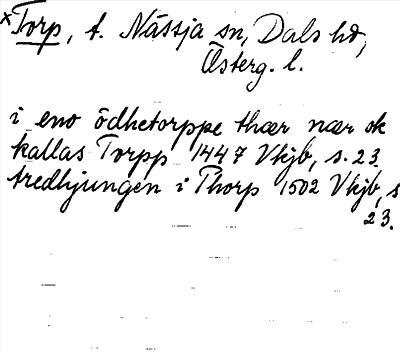 ×Torp, t. Nässja sn, Dals hd,
Österg. l.
i eno ödhetorppe thær nær ok
kallas Torpp 1447 Vkjb, s. 23.
tredhjungen i Thorp 1502 Vkjb, s
23.